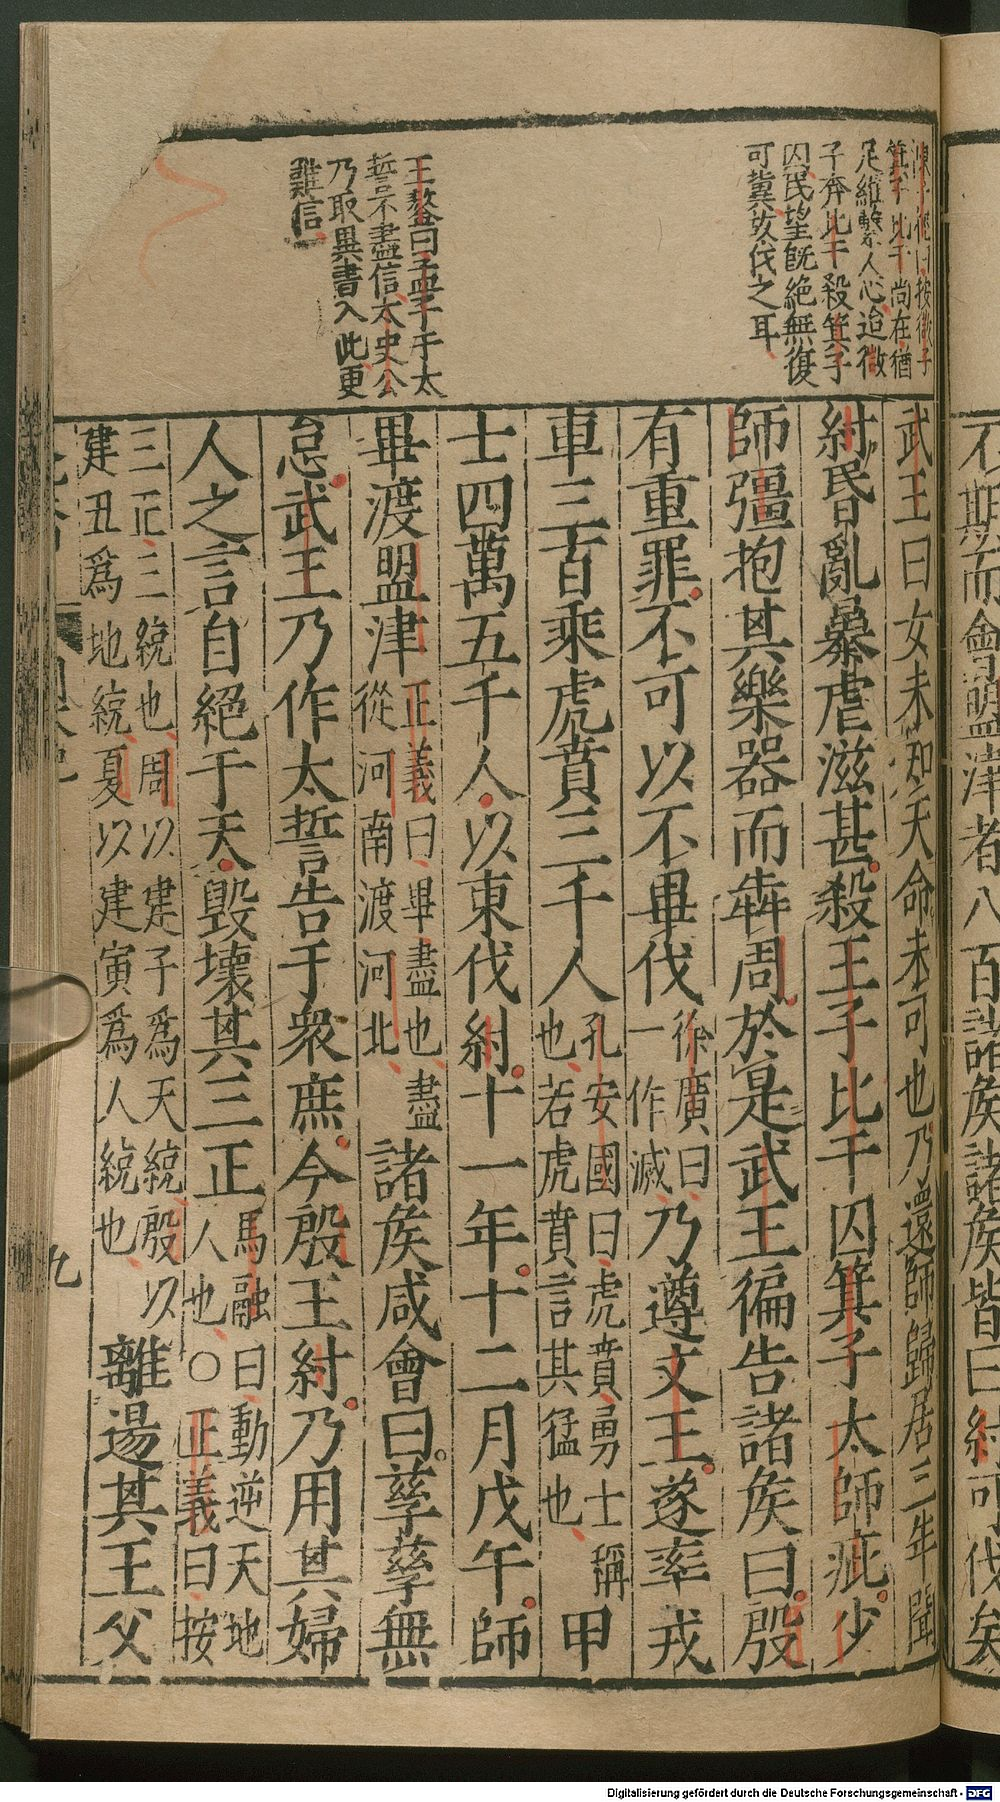 不期而會盟津者八百諸矦諸矦皆曰紂可伐矣
按微子
箕子比干尚在猶
足維繫人心迨微
子奔比干殺箕子
囚民望旣絕無復
可冀故伐之耳
王鏊曰孟子于太
誓不盡信太史公
乃取異書入此更
難信
武王曰女未知天命未可也乃還師歸居二年聞
紂昏亂暴虐滋甚殺王子比干囚箕子太師疵少
師彊抱其樂器而犇周於是武王徧告諸矦曰殷
有重罪不可以不畢伐徐廣曰一作滅乃遵文王遂率戎
車三百乘虎賁三千人孔安國曰虎賁勇士稱也若虎賁言其猛也甲
士四萬五千人以東伐紂十一年十二月戊午師
畢渡盟津正義曰畢盡也盡從河南渡河北諸矦咸會曰孳孳無
怠武王乃作太誓告于衆庶今殷王紂乃用其婦
人之言自絕于天毀壞其三正馬融曰動逆天地人也○正義曰按
三正三統也周以建子爲天統殷以建丑爲地統夏以建寅爲人統也離逷其王父
九
Digitalisierung gefördert durch die Deutsche Forschungsgemeinschaft - DFG